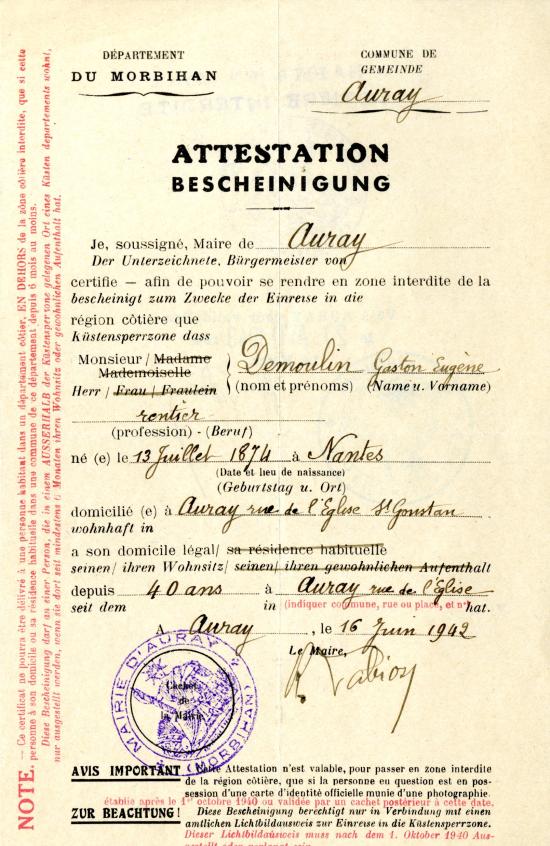 DÉPARTEMENT
DU MORBIHAN
COMMUNE DE
GEMEINDE
Auray
ATTESTATION
BESCHEINIGUNG
Je, soussigné, Maire de Auray
Der Unterzeichnete, Bürgermeister von
certifie — afin de pouvoir se rendre en zone interdite de la
bescheinigt zum Zwecke der Einreise in die
région côtière que
Küstensperrzone dass
Monsieur / Madame
Mademoiselle
Herr / Frau / Fraulein
Demoulin Gaston Eugène
(nom et prénoms) (Name u. Vorname)
rentier
(profession) - (Beruf)
né (e) le 13 Juillet 1874 à Nantes
(Date et lieu de naissance)
(Geburtstag u. Ort)
domicilié (e) à Auray rue de l'Église St Goustan
wohnhaft in
a son domicile légal/ sa résidence habituelle
seinen/ ihren Wohnsitz/ seinen/ ihren gewohnlichen Aufenthalt
depuis 40 ans à Auray rue de l'Église
seit dem in (indiquer commune, rue ou place, et n° hat.
A Auray, le 16 Juin 1942
Le Maire,
MAIRIE D'AURAY
(MORBIHAN)
Cachet
de
la Mairie
AVIS IMPORTANT Cette Attestation n'est valable, pour passer en zone interdite
de la région côtière, que si la personne en question est en pos-
session d'une carte d'identité officielle munie d'une photographie.
établie après le 1er octobre 1940 ou validée par un cachet postérieur à cette date.
ZUR BEACHTUNG! Diese Bescheinigung berechtigt nur in Verbindung mit einem
amtlichen Lichtbildausweis zur Einreise in die Küstensperrzone.
Dieser Lichtbildausweis muss nach dem 1. Oktober 1940 Aus-
NOTE. — Ce certificat ne pourra être délivré à une personne habitant dans un département côtier, EN DEHORS de la zône côtière interdite, que si cette
personne à son domicile ou sa résidence habituelle dans une commune de ce département depuis 6 mois au moins.
Diese Bescheinigung darf an einer Person, die in einem AUSSERHALB der Küstensperrzone gelegenen Ort eines Küsten departements wohnt,
nur ausgestellt werden, wenn sie dort seit mindestens 6 Monaten ihren Wohnsitz oder gewohnlichen Aufenthalt hat.